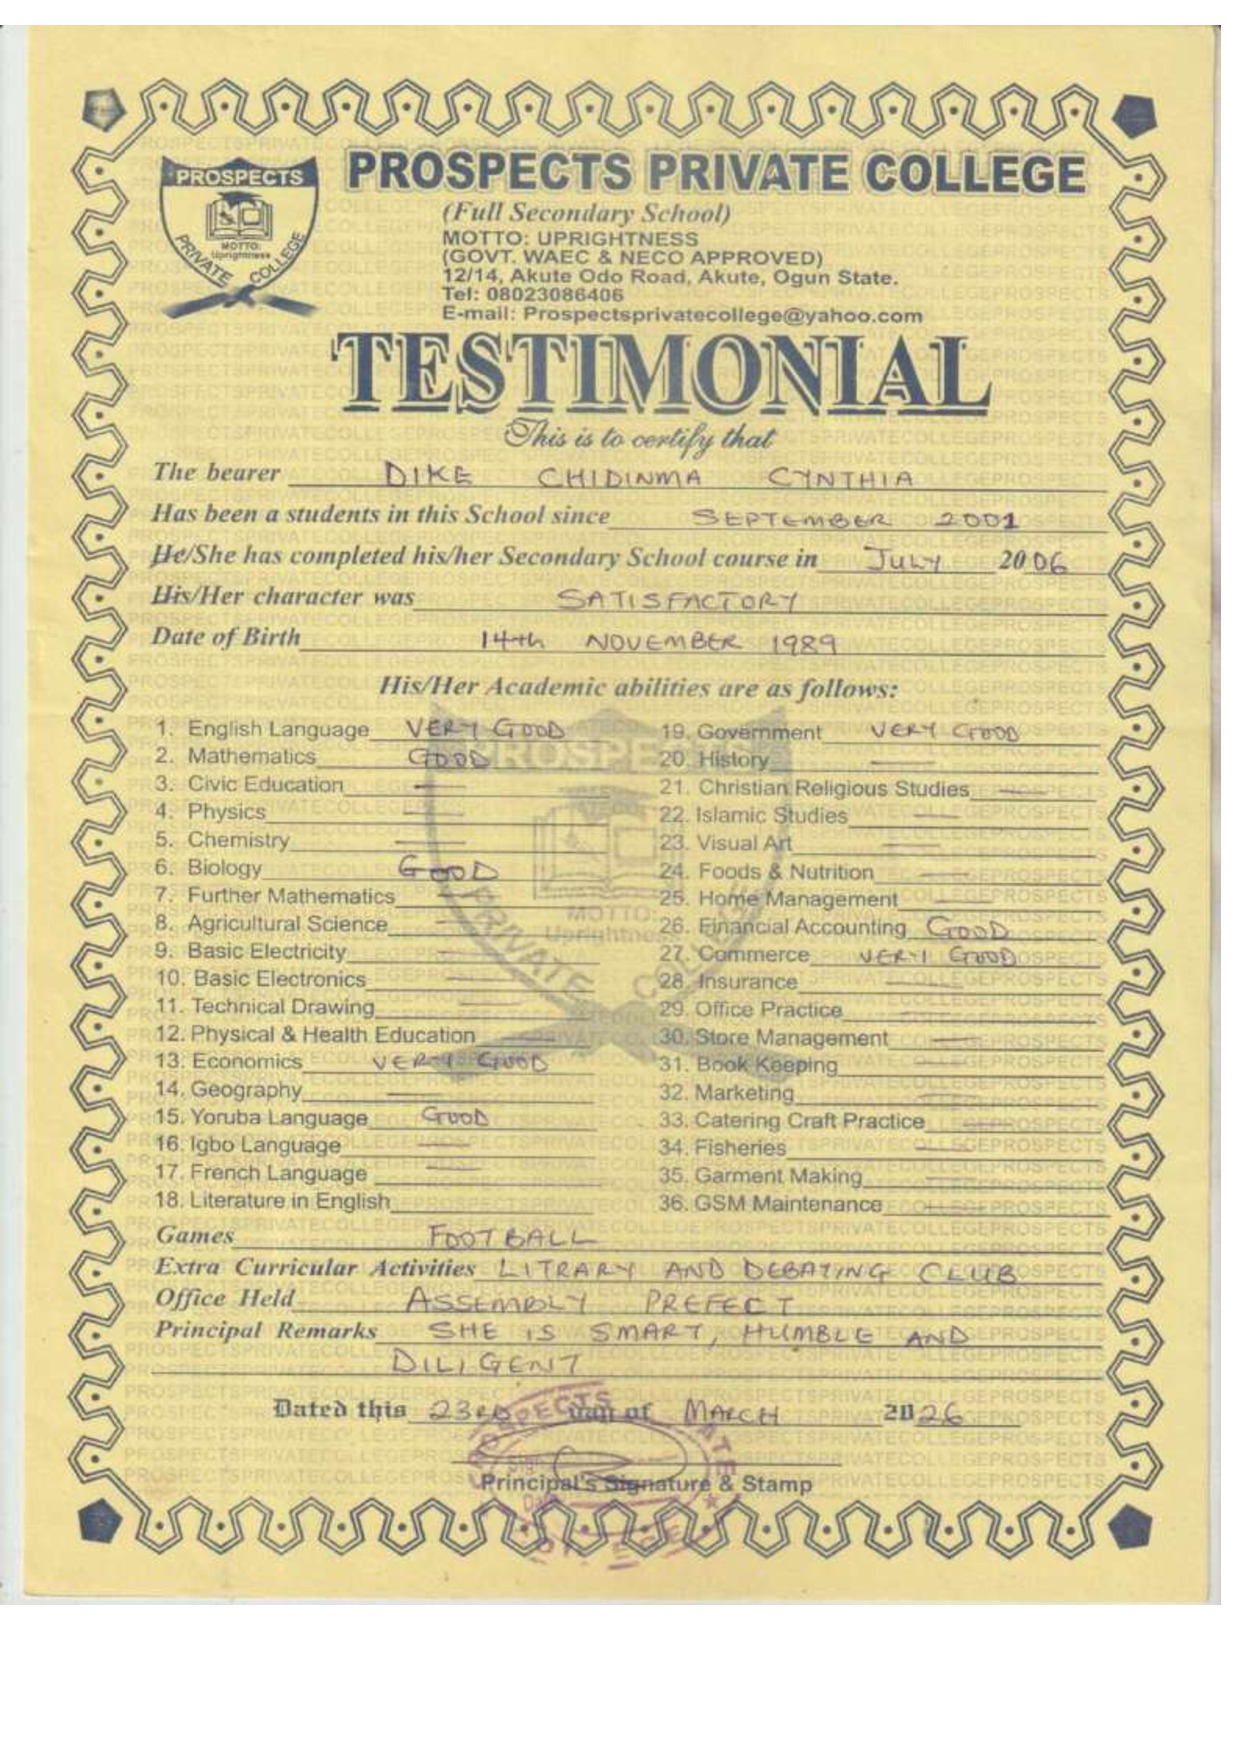 PROSPECTS
PRIVATE COLLEGE
MOTTO:
Uprightness
PROSPECTS PRIVATE COLLEGE
(Full Secondary School)
MOTTO: UPRIGHTNESS
(GOVT. WAEC & NECO APPROVED)
12/14, Akute Odo Road, Akute, Ogun State.
Tel: 08023086406
E-mail: Prospectsprivatecollege@yahoo.com
TESTIMONIAL
This is to certify that
The bearer DIKE CHIDINMA CYNTHIA
Has been a students in this School since SEPTEMBER 2001
He/She has completed his/her Secondary School course in JULY 2006
His/Her character was SATISFACTORY
Date of Birth 14th NOVEMBER 1989
His/Her Academic abilities are as follows:
1. English Language VERY GOOD
2. Mathematics GOOD
3. Civic Education —
4. Physics —
5. Chemistry —
6. Biology GOOD
7. Further Mathematics —
8. Agricultural Science —
9. Basic Electricity —
10. Basic Electronics —
11. Technical Drawing —
12. Physical & Health Education —
13. Economics VERY GOOD
14. Geography —
15. Yoruba Language GOOD
16. Igbo Language —
17. French Language —
18. Literature in English
19. Government VERY GOOD
20. History —
21. Christian Religious Studies —
22. Islamic Studies —
23. Visual Art —
24. Foods & Nutrition —
25. Home Management —
26. Financial Accounting GOOD
27. Commerce VERY GOOD
28. Insurance —
29. Office Practice —
30. Store Management —
31. Book Keeping —
32. Marketing —
33. Catering Craft Practice —
34. Fisheries —
35. Garment Making —
36. GSM Maintenance —
Games FOOTBALL
Extra Curricular Activities LITRARY AND DEBATING CLUB
Office Held ASSEMBLY PREFECT
Principal Remarks SHE IS SMART, HUMBLE AND
DILIGENT
Dated this 23RD day of MARCH 2026
Principal's Signature & Stamp